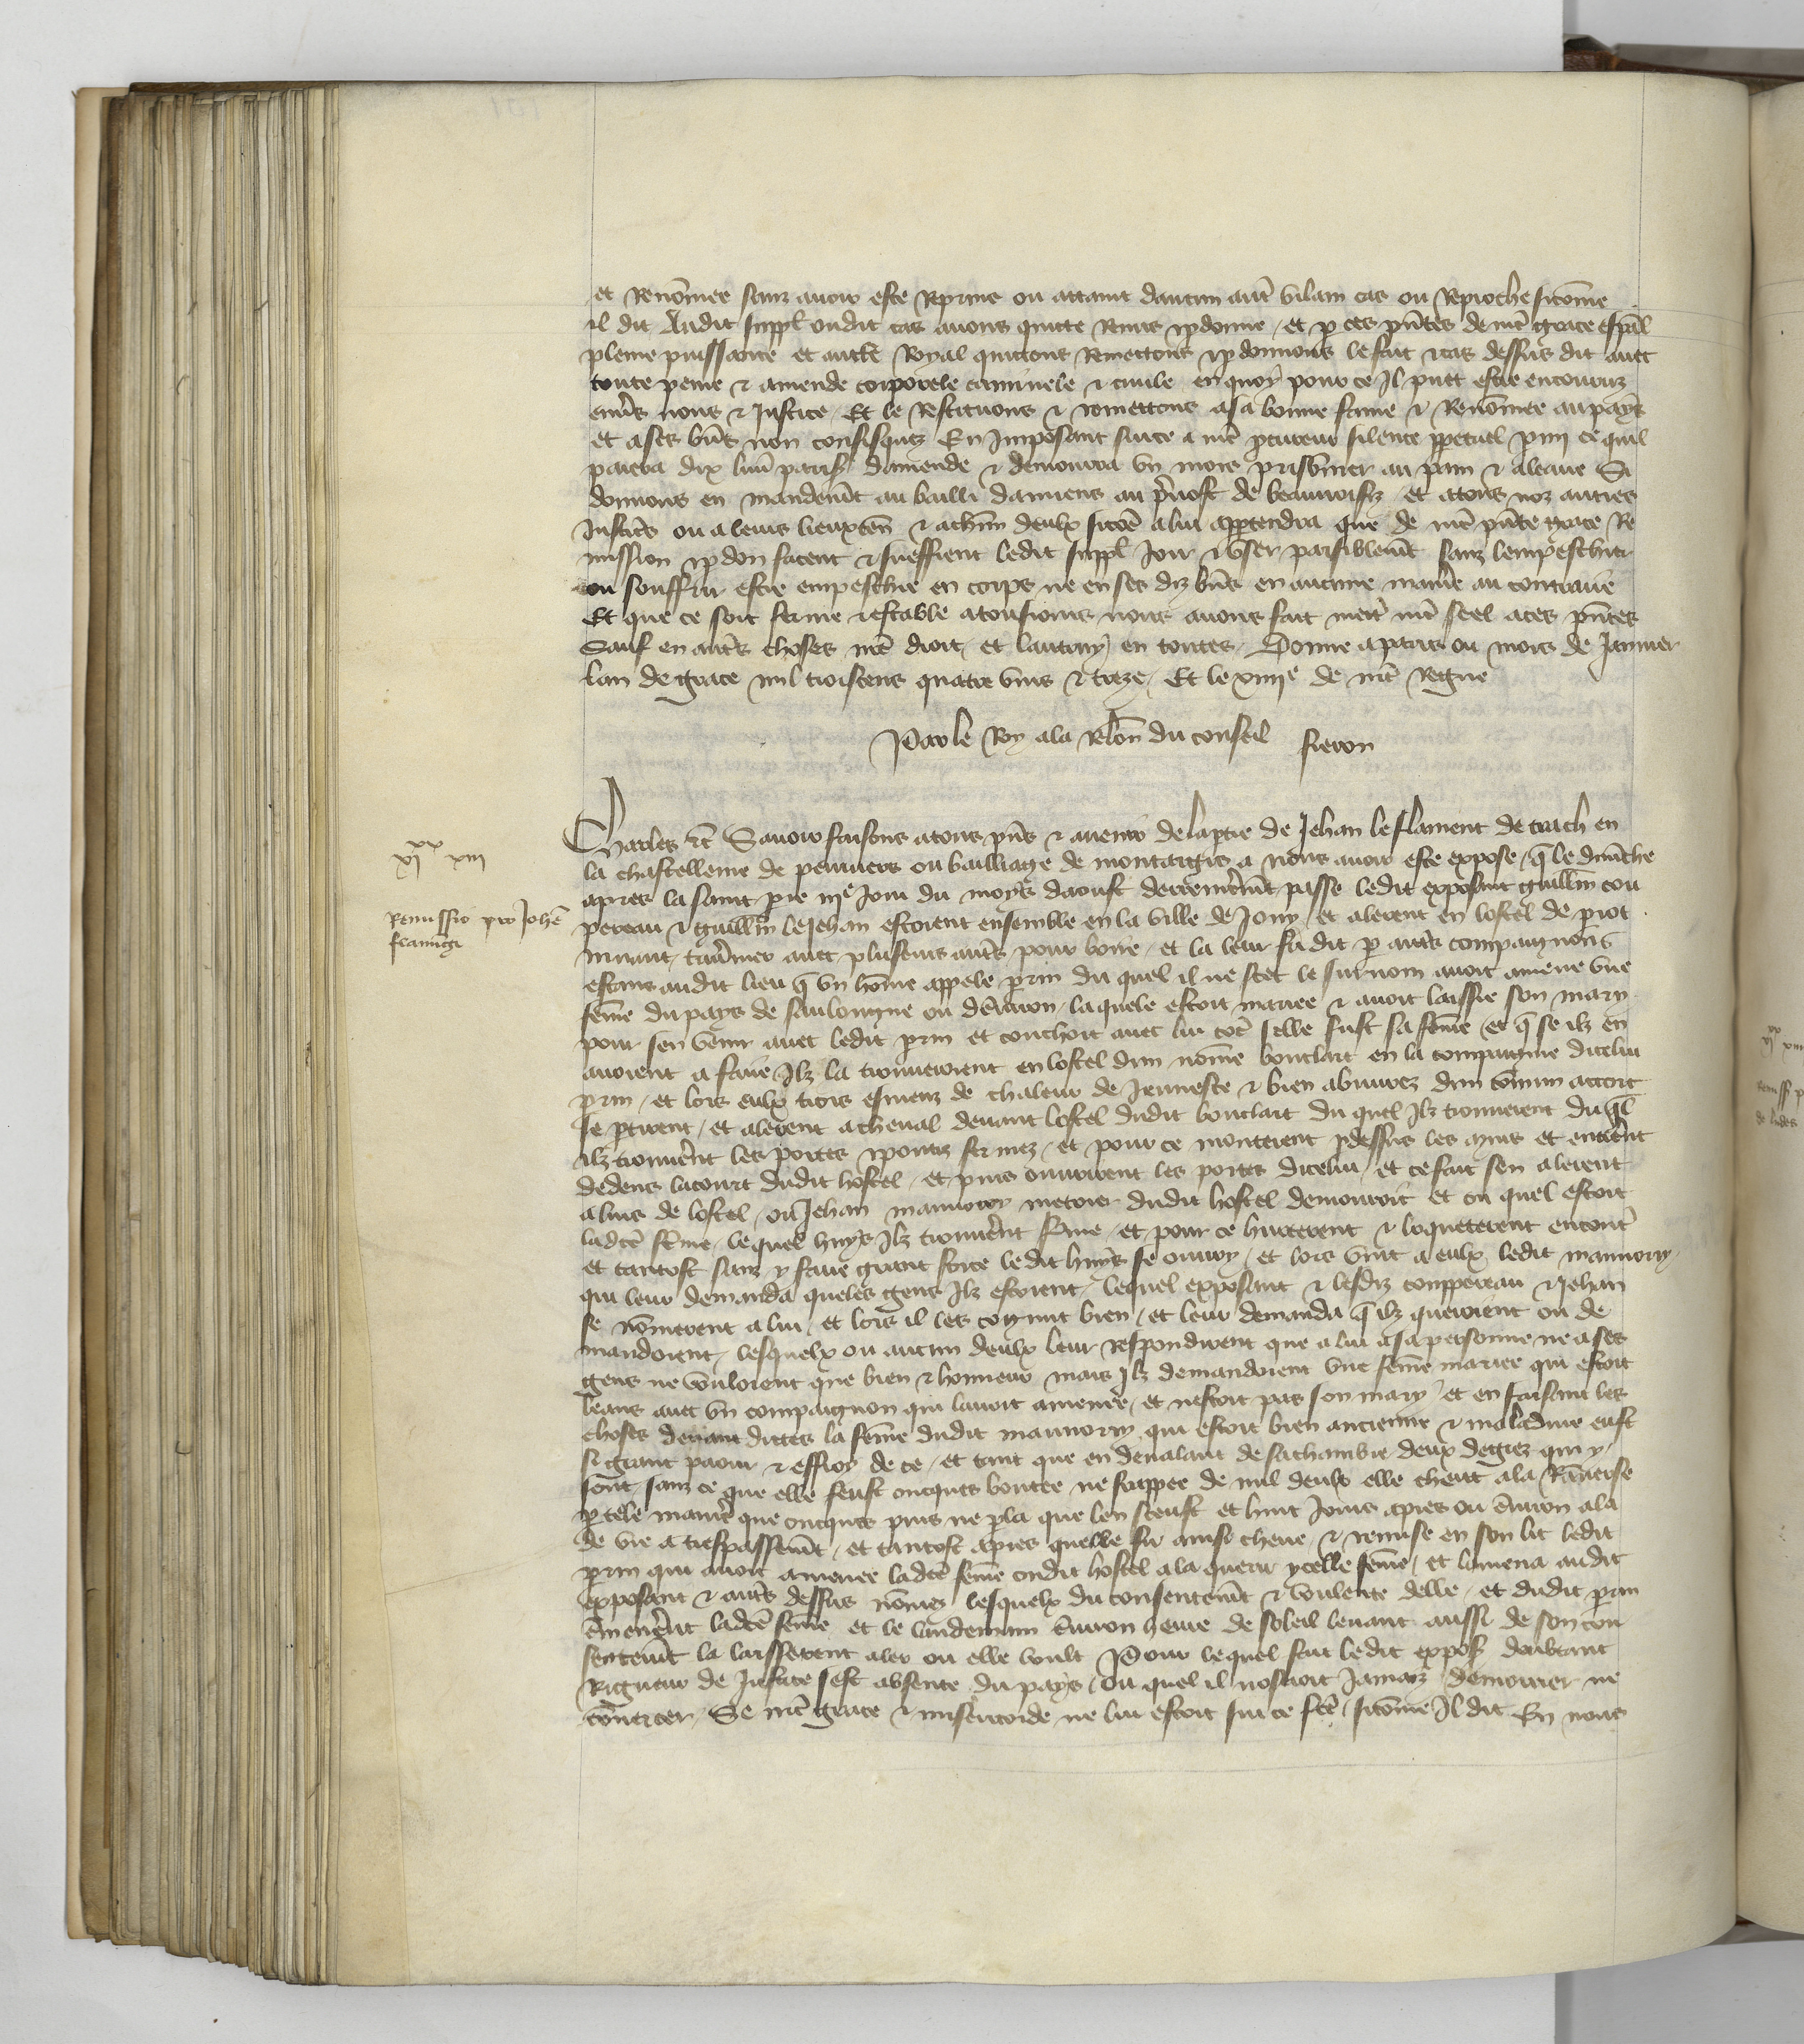 et renōmee sanz avoir este reprins ou attaint daucun autr̄ vilain cas ou reprouche sicōme
il dit Audit suppl̄ oudit cas avons quicte remis et p̱donne / et p̱ ces pn̄tes de nr̄e grace esp̄al
pleine puissance et auct̄e Royal quictons remettons et p̱donnons le fait et cas dessus dit avec
toute peine & amende corporele criminele & civile en quoy pour ce Il puet estre encouruz
env̄s nous & Justice / Et le restituons & remettons a sa bonne fame & Renōmee au pays
et a ses bn̄s non confisquez En Imposant sur ce a nr̄e p̱cureur silence p̱petuel p̱mi ce quil
paiera dix liur̄ parisz damende & demourra un mois prisōnier au pain & a leaue Si
donnons en mandem̄t au bailli damiens au p̄vost de beauvoisiz / et a to9 noz autres
Justic̄s ou a leurs lieuxten̄ & a chūn deulx sicōe a lui appartendra que de nr̄e pn̄te grace Re
mission et p̱don facent & sueffrent ledit suppl̄ Joir & user paisiblem̄t sanz lempeschier
ou souffrir estre empeschie en corps ne en ses diz bn̄s en aucune manir̄e au contraire
Et que ce soit ferme & estable a tousiours nous avons fait mettr̄ nr̄e seel a ces pn̄tes
Sauf en autr̄s choses nr̄e droit / et lautruy en toutes / Donne a paris ou mois de Janvier
lan de grace mil troiscens quatre vins & treze / Et le xiiiie de nr̄e Regne
Par le Roy a la rel̄on du conseil freron
xi xx xiii
Remissio pro Joh̄e
flamingi
Charles etc̄ Savoir faisons a tous pn̄s & avenir de la ptie de Jehan le flament de trach en
la chastellenie de peuviers ou bailliage de montargis a nous avoir este expose / q̄ le dimēche
apres la saint pre iiie Jour du moys daoust derrenierem̄t passe ledit exposant guill̄m cou
pereau & guill̄m le Jehan estoient ensemble en la ville de Jouy / et alerent en lostel de p̱rot
taṽnier avec plusieurs autr̄s pour boire / et la leur fu dit p̱ autr̄s compaignons
estans audit lieu q̄ un hōme appele p̱rin du quel il ne scet le surnom avoit amene une
fēme du pays de sauloingne ou denviron / la quele estoit mariee & avoit laissie son mary
pour sen venir avec ledit p̱rin et couchoit avec lui cōe selle fust sa fēme / et q̄ se ilz en
avoient a faire / Ilz la trouveroient en lostel dun nōme bouclart en la compaignie dicelui
p̱rin / et lors eulx trois esmeuz de chaleur de Jeunesce & bien abuvrez dun cōmun accort
se p̱tirent / et alerent a cheval devant lostel dudit bouclart du quel Ilz trouverent du q̄l
ilz trouver̄nt les portes et pontz fermez / et pour ce monterent p̱ dessus les murs et entrer̄nt
dedens la court dudit hostel / et puis ouvrirent les portes dicelui / et ce fait sen alerent
a luis de lostel / ou Jehan mannory metoier dudit hostel demouroit et ou quel estoit
ladicte fēme / lequel huys Ilz trouver̄nt ferme / et pour ce hurterent & loqueterent encontr̄
et tantost sanz y faire grant force ledit huys se ouvry / et lors vint a eulx ledit mannory
qui leur demanda queles gens Ilz estoient / lequel exposant & lesdiz couppereau & Jehan
se nōmerent a lui / et lors il les cognut bien / et leur demanda q̄ ilz queroient ou de
mandoient / lesquelx ou aucun deulx leur respondirent que a lui a sa personne ne a ses
gens ne vouloient que bien & honneur mais Ilz demandoient une fēme mariee qui estoit
leans avec un compaignon qui lavoit amenee / et nestoit pas son mary / et en faisant les
choses devant dictes la fēme dudit mannory qui estoit bien ancienne & maladive eust
si grant paour & effroy de ce / et tant que en devalant de sa chambre deux degrez qui y
sont / sanz ce que elle feust oncques boutee ne frappee de nul deulx elle cheut a la Rāverse
p̱ tele manier̄ que oncques puis ne p̱la que len sceust et huit Jours apres ou ēviron ala
de vie a trespassem̄t / et tantost apres quelle fu ainsi cheue / & remise en son lit ledit
p̱rin qui avoit amenee ladcē fēme oudit hostel ala querir ycelle fēme / et lamena audit
exposant & autr̄s dessus nōmez lesquelx du consentem̄t & voulente delle / et dudit p̱rin
ēmener̄nt ladcē fēme et le lendemain ēviron heure de soleil levant aussi de son con
sentem̄t la laisserent aler ou elle voult Pour lequel fait ledit expos̄ doubtant
Rigueur de Justice sest absente du pays / ou quel il noseroit Jamaiz demourer ne
cōverser / Se nr̄e grace & misericorde ne lui estoit sur ce fcē / sicōme Il dit En nous